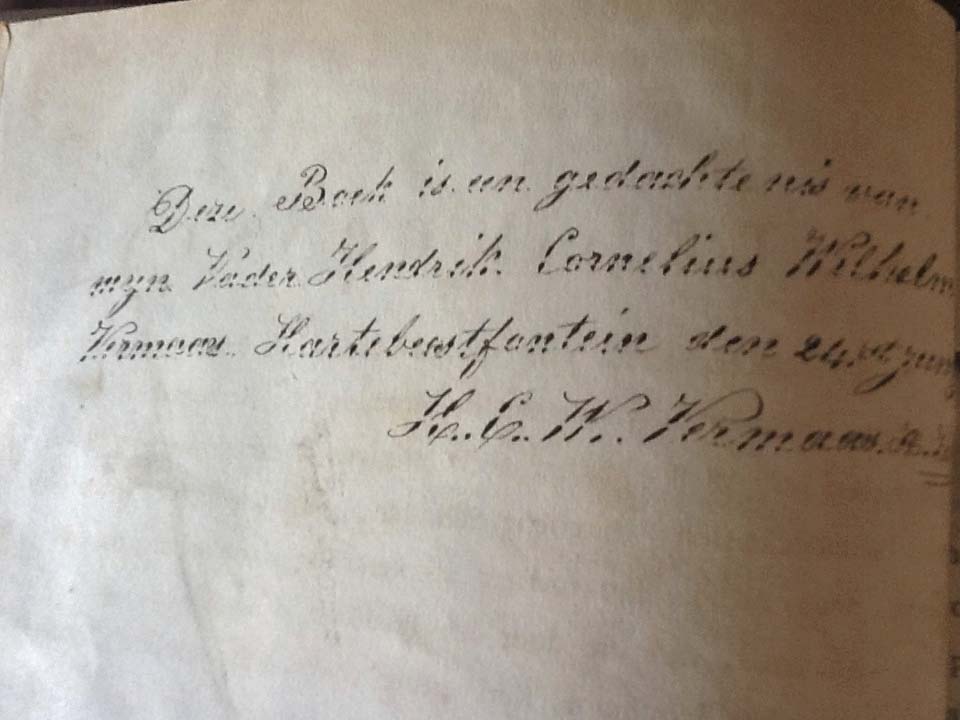 Deze Boek is een gedachtenis van
myn Vader Hendrik Cornelius Wilhelm
Vermaas Hartebeestfontein den 24
H. C. W. Vermaas